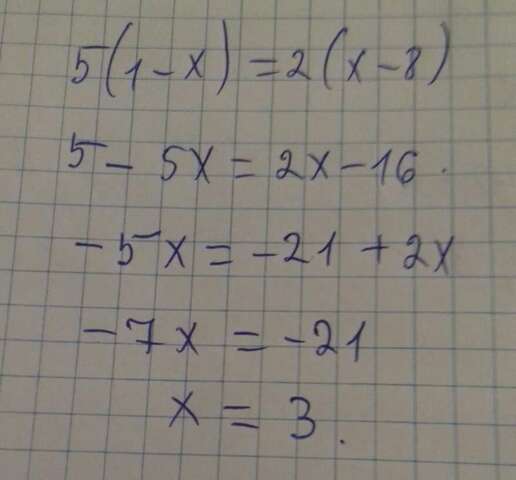 5(1-x)=2(x-8)
5-5x=2x-16.
-5x=-21+2x
-7x=-21
x=3.